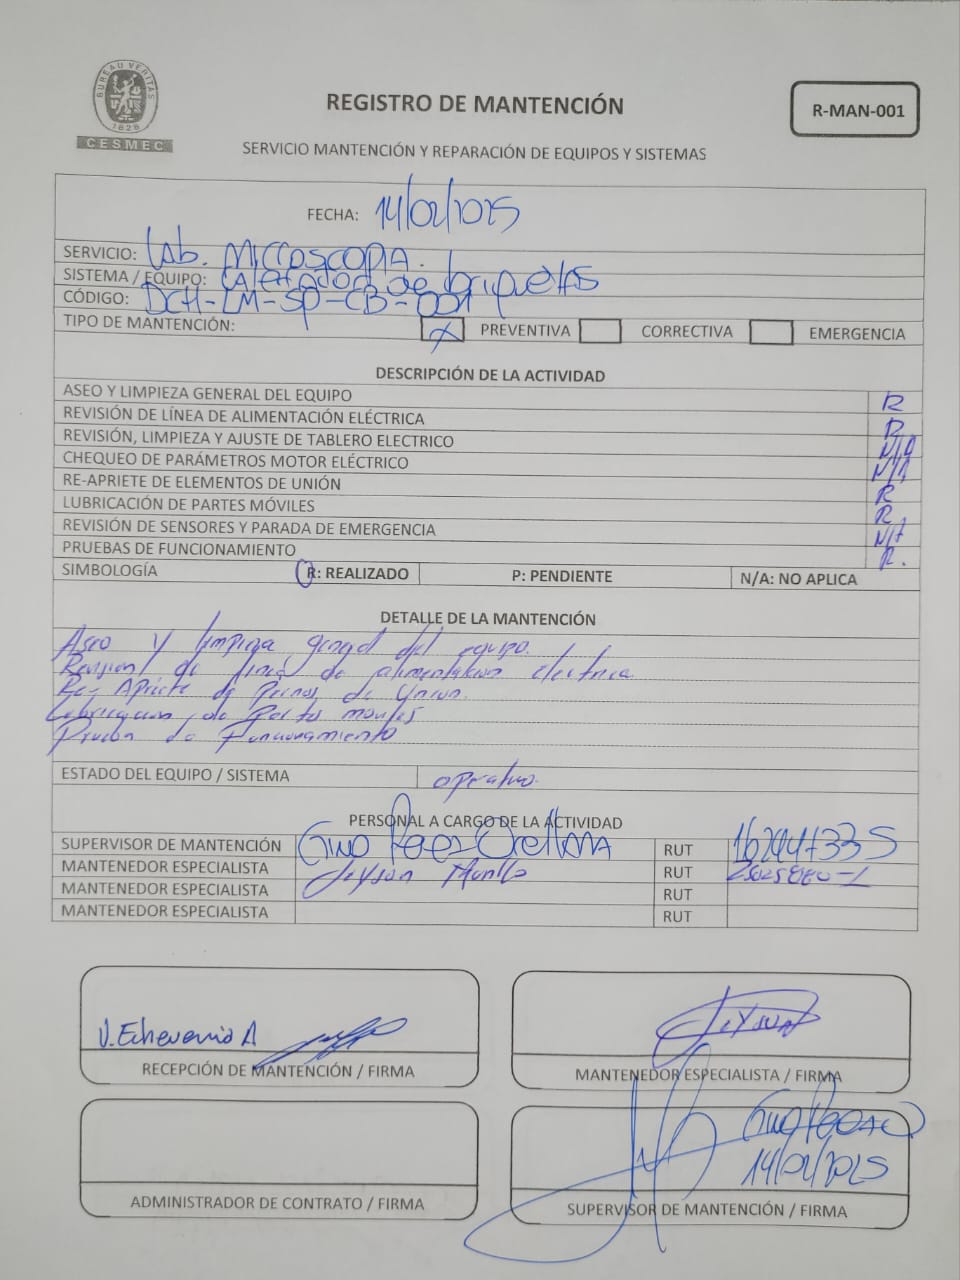 BUREAU VERITAS
1828
CESMEC
REGISTRO DE MANTENCIÓN
R-MAN-001
SERVICIO MANTENCIÓN Y REPARACIÓN DE EQUIPOS Y SISTEMAS
FECHA: 14/02/2025
SERVICIO: Lab. Microscopia.
SISTEMA / EQUIPO: Calefactor de briquetas
CÓDIGO: DCH-LM-SP-CB-001
TIPO DE MANTENCIÓN: X PREVENTIVA CORRECTIVA EMERGENCIA
DESCRIPCIÓN DE LA ACTIVIDAD
ASEO Y LIMPIEZA GENERAL DEL EQUIPO R
REVISIÓN DE LÍNEA DE ALIMENTACIÓN ELÉCTRICA R
REVISIÓN, LIMPIEZA Y AJUSTE DE TABLERO ELECTRICO N/A
CHEQUEO DE PARÁMETROS MOTOR ELÉCTRICO N/A
RE-APRIETE DE ELEMENTOS DE UNIÓN R
LUBRICACIÓN DE PARTES MÓVILES R
REVISIÓN DE SENSORES Y PARADA DE EMERGENCIA N/A
PRUEBAS DE FUNCIONAMIENTO R.
SIMBOLOGÍA R: REALIZADO P: PENDIENTE N/A: NO APLICA
DETALLE DE LA MANTENCIÓN
Aseo y limpieza general del equipo.
Revision de linea de alimentacion electrica.
Re-Apriete de Pernos de Union.
Lubricacion de Partes moviles
Prueba de Funcionamiento
ESTADO DEL EQUIPO / SISTEMA operativo.
PERSONAL A CARGO DE LA ACTIVIDAD
SUPERVISOR DE MANTENCIÓN Gino Perez Orellana RUT
MANTENEDOR ESPECIALISTA Jeyson Murillo RUT
MANTENEDOR ESPECIALISTA RUT
MANTENEDOR ESPECIALISTA RUT
V. Echeverria A
RECEPCIÓN DE MANTENCIÓN / FIRMA
Jeyson
MANTENEDOR ESPECIALISTA / FIRMA
ADMINISTRADOR DE CONTRATO / FIRMA
Gino
14/02/2025
SUPERVISOR DE MANTENCIÓN / FIRMA